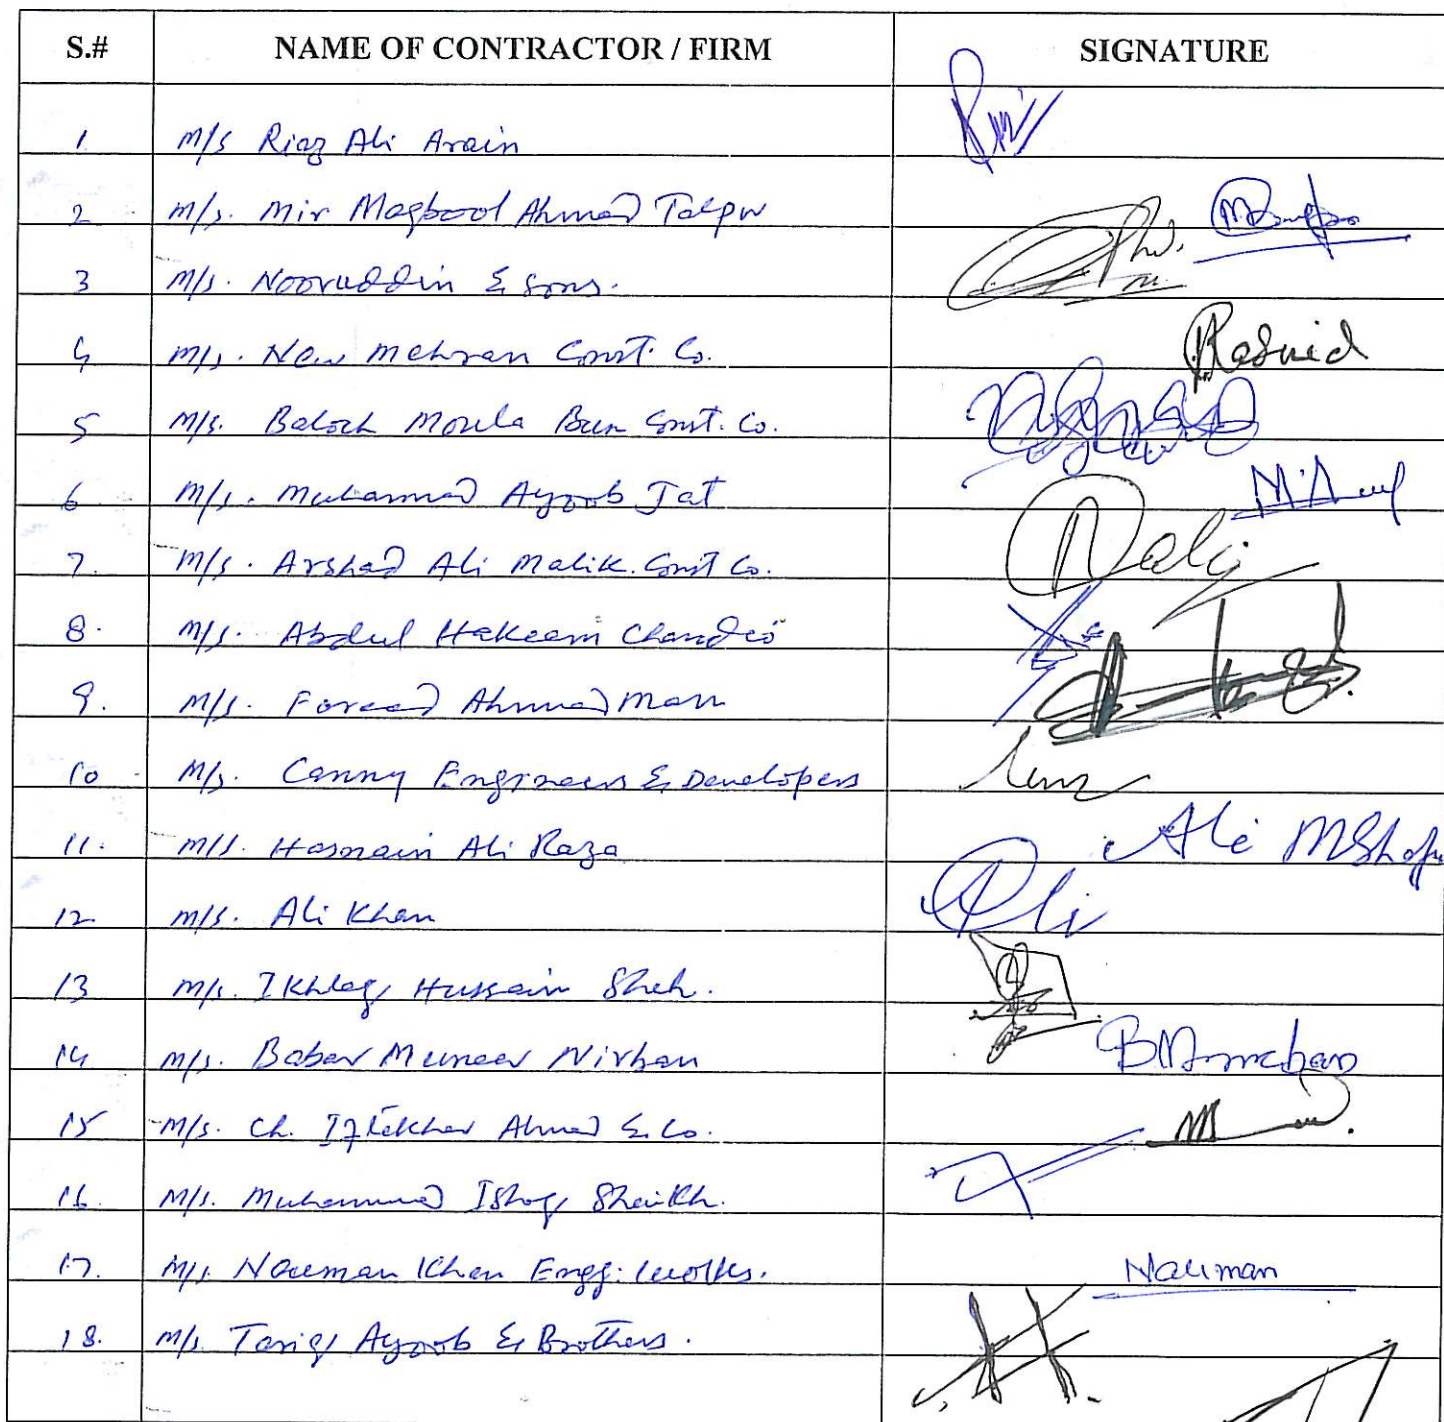 S.# NAME OF CONTRACTOR / FIRM SIGNATURE
1 M/S Riaz Ali Arain
2 M/S. Mir Maqbool Ahmed Talpur
3 M/S. Nooruddin & Sons.
4 M/S. New Mehran Const. Co. Rashid
5 M/S. Baloch Moula Bux Const. Co.
6 M/S. Muhammad Ayoob Jat
7. M/S. Arshad Ali Malik Const Co.
8. M/S. Abdul Hakeem Chandio
9. M/S. Fareed Ahmed Marri
10 M/S. Canny Engineers & Developers
11. M/S. Hasnain Ali Raza Ali
12 M/S. Ali Khan Ali
13 M/S. Ikhlaq Hussain Shah.
14 M/S. Babar Muneer Nirban
15 M/S. Ch. Iftekhar Ahmed & Co.
16 M/S. Muhammad Ishaq Shaikh.
17. M/S. Nauman Khan Engg: Works. Nauman
18. M/S. Tariq Ayoob & Brothers.